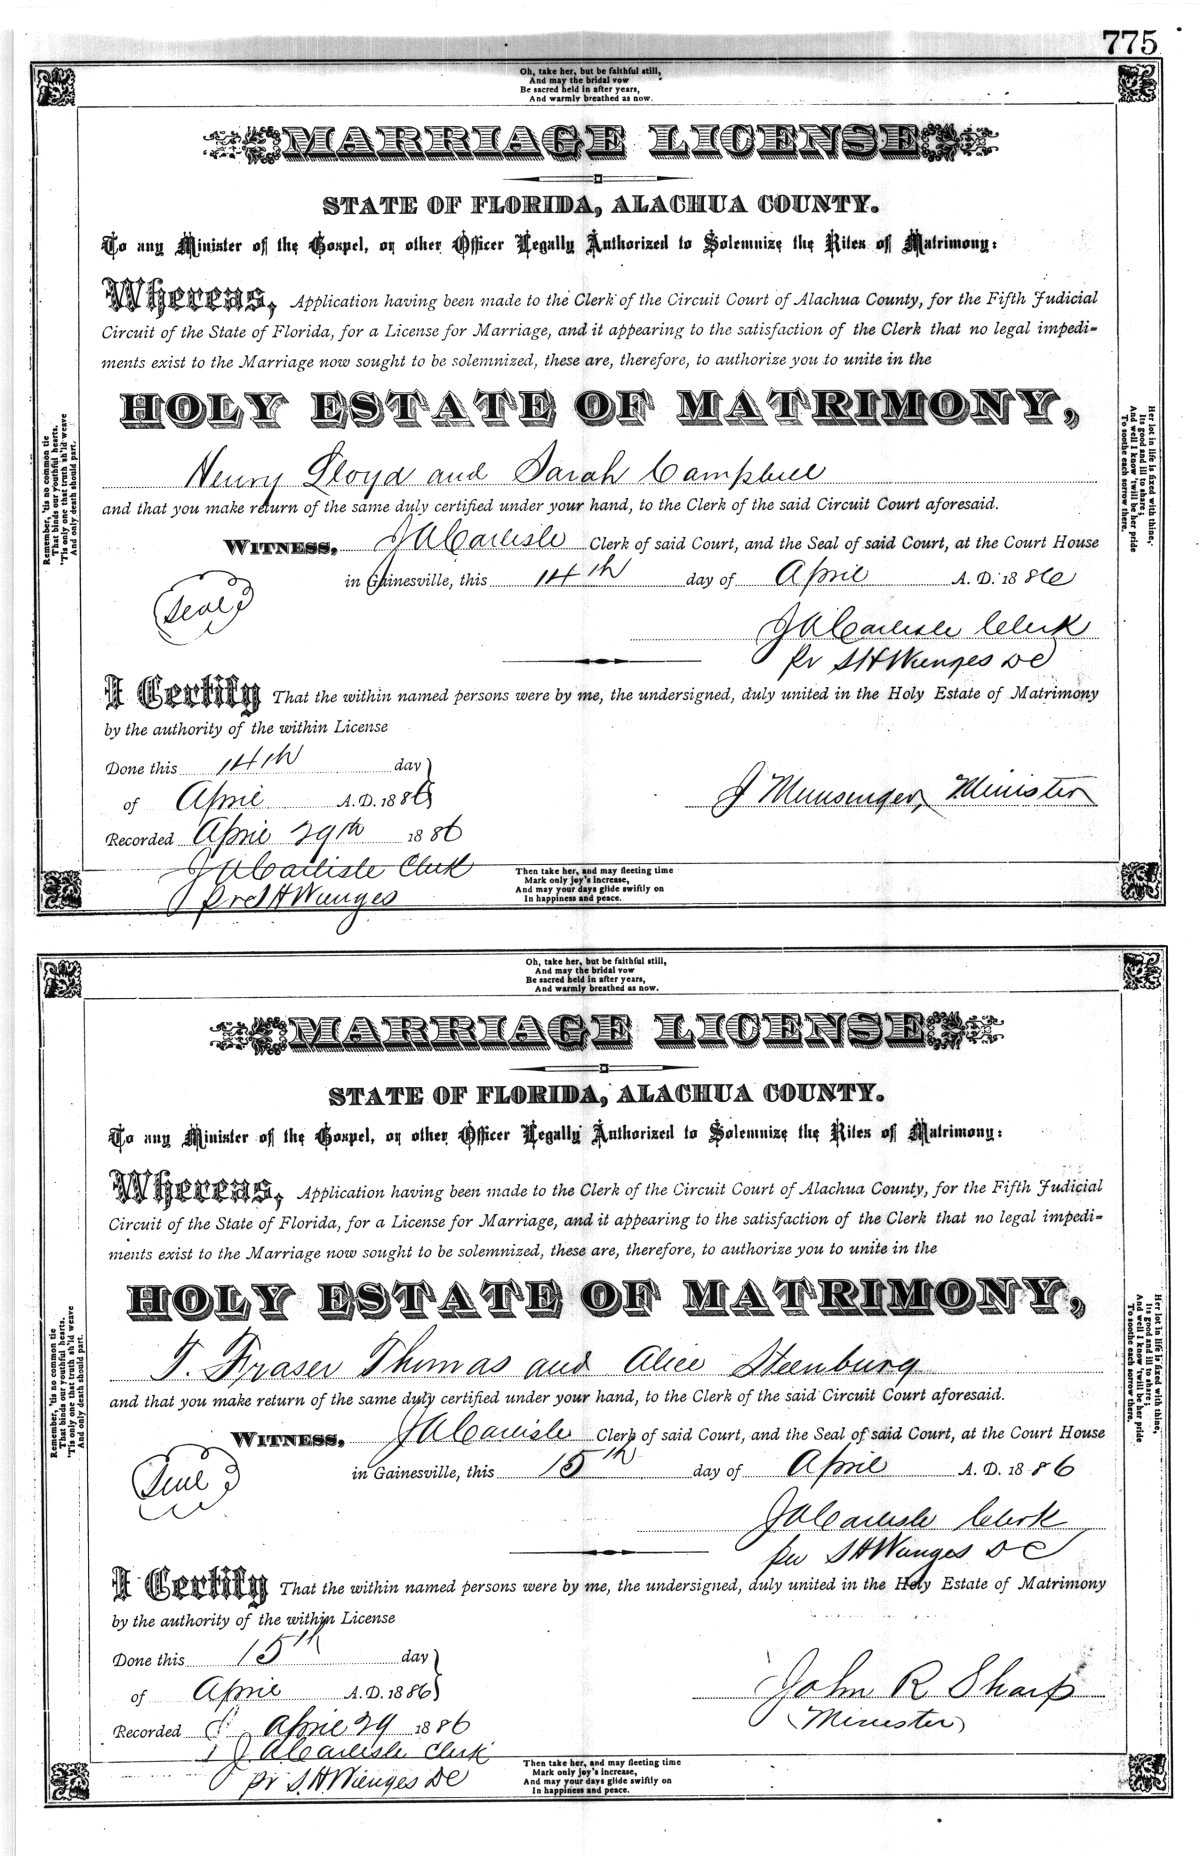 775
Oh, take her, but be faithful still,
And may the bridal vow
Be sacred held in after years,
And warmly breathed as now.
MARRIAGE LICENSE
STATE OF FLORIDA, ALACHUA COUNTY.
To any Minister of the Gospel, or other Officer Legally Authorized to Solemnize the Rites of Matrimony:
Whereas, Application having been made to the Clerk of the Circuit Court of Alachua County, for the Fifth Judicial
Circuit of the State of Florida, for a License for Marriage, and it appearing to the satisfaction of the Clerk that no legal impedi-
ments exist to the Marriage now sought to be solemnized, these are, therefore, to authorize you to unite in the
HOLY ESTATE OF MATRIMONY,
Henry Lloyd and Sarah Campbell
and that you make return of the same duly certified under your hand, to the Clerk of the said Circuit Court aforesaid.
WITNESS, J A Carlisle Clerk of said Court, and the Seal of said Court, at the Court House
in Gainesville, this 14th day of April A. D. 1886
Seal
J A Carlisle Clerk
pr S H Wienges DC
I Certify That the within named persons were by me, the undersigned, duly united in the Holy Estate of Matrimony
by the authority of the within License
Done this 14th day
of April A.D. 1886
J Munsenger, Minister
Recorded April 29th 1886
J A Carlisle Clerk
pr S H Wienges
Remember, 'tis no common tie
That binds our youthful hearts.
'Tis only one that truth sh'ld weave
And only death should part.
Her lot in life is fixed with thine,
Its good and ill to share;
And well I know 'twill be her pride
To soothe each sorrow there.
Then take her, and may fleeting time
Mark only joy's increase,
And may your days glide swiftly on
In happiness and peace.
Oh, take her, but be faithful still,
And may the bridal vow
Be sacred held in after years,
And warmly breathed as now.
MARRIAGE LICENSE
STATE OF FLORIDA, ALACHUA COUNTY.
To any Minister of the Gospel, or other Officer Legally Authorized to Solemnize the Rites of Matrimony:
Whereas, Application having been made to the Clerk of the Circuit Court of Alachua County, for the Fifth Judicial
Circuit of the State of Florida, for a License for Marriage, and it appearing to the satisfaction of the Clerk that no legal impedi-
ments exist to the Marriage now sought to be solemnized, these are, therefore, to authorize you to unite in the
HOLY ESTATE OF MATRIMONY,
T. Fraser Thomas and Alice Steenburg
and that you make return of the same duly certified under your hand, to the Clerk of the said Circuit Court aforesaid.
WITNESS, J A Carlisle Clerk of said Court, and the Seal of said Court, at the Court House
in Gainesville, this 15th day of April A. D. 1886
Seal
J A Carlisle Clerk
per S H Wienges DC
I Certify That the within named persons were by me, the undersigned, duly united in the Holy Estate of Matrimony
by the authority of the within License
Done this 15th day
of April A.D. 1886
John R Sharp
(Minister)
Recorded April 29 1886
J A Carlisle Clerk
pr S. H. Wienges DC
Remember, 'tis no common tie
That binds our youthful hearts.
'Tis only one that truth sh'ld weave
And only death should part.
Her lot in life is fixed with thine,
Its good and ill to share;
And well I know 'twill be her pride
To soothe each sorrow there.
Then take her, and may fleeting time
Mark only joy's increase,
And may your days glide swiftly on
In happiness and peace.